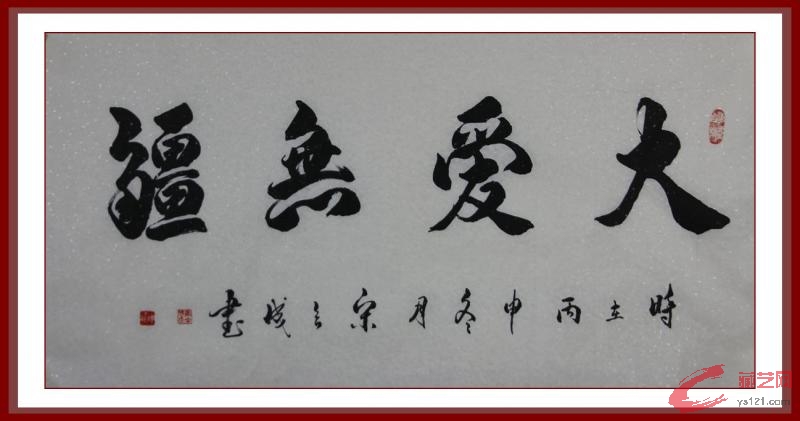 大愛無疆
時在丙申冬月宋之成書
藏艺网
ys121.com